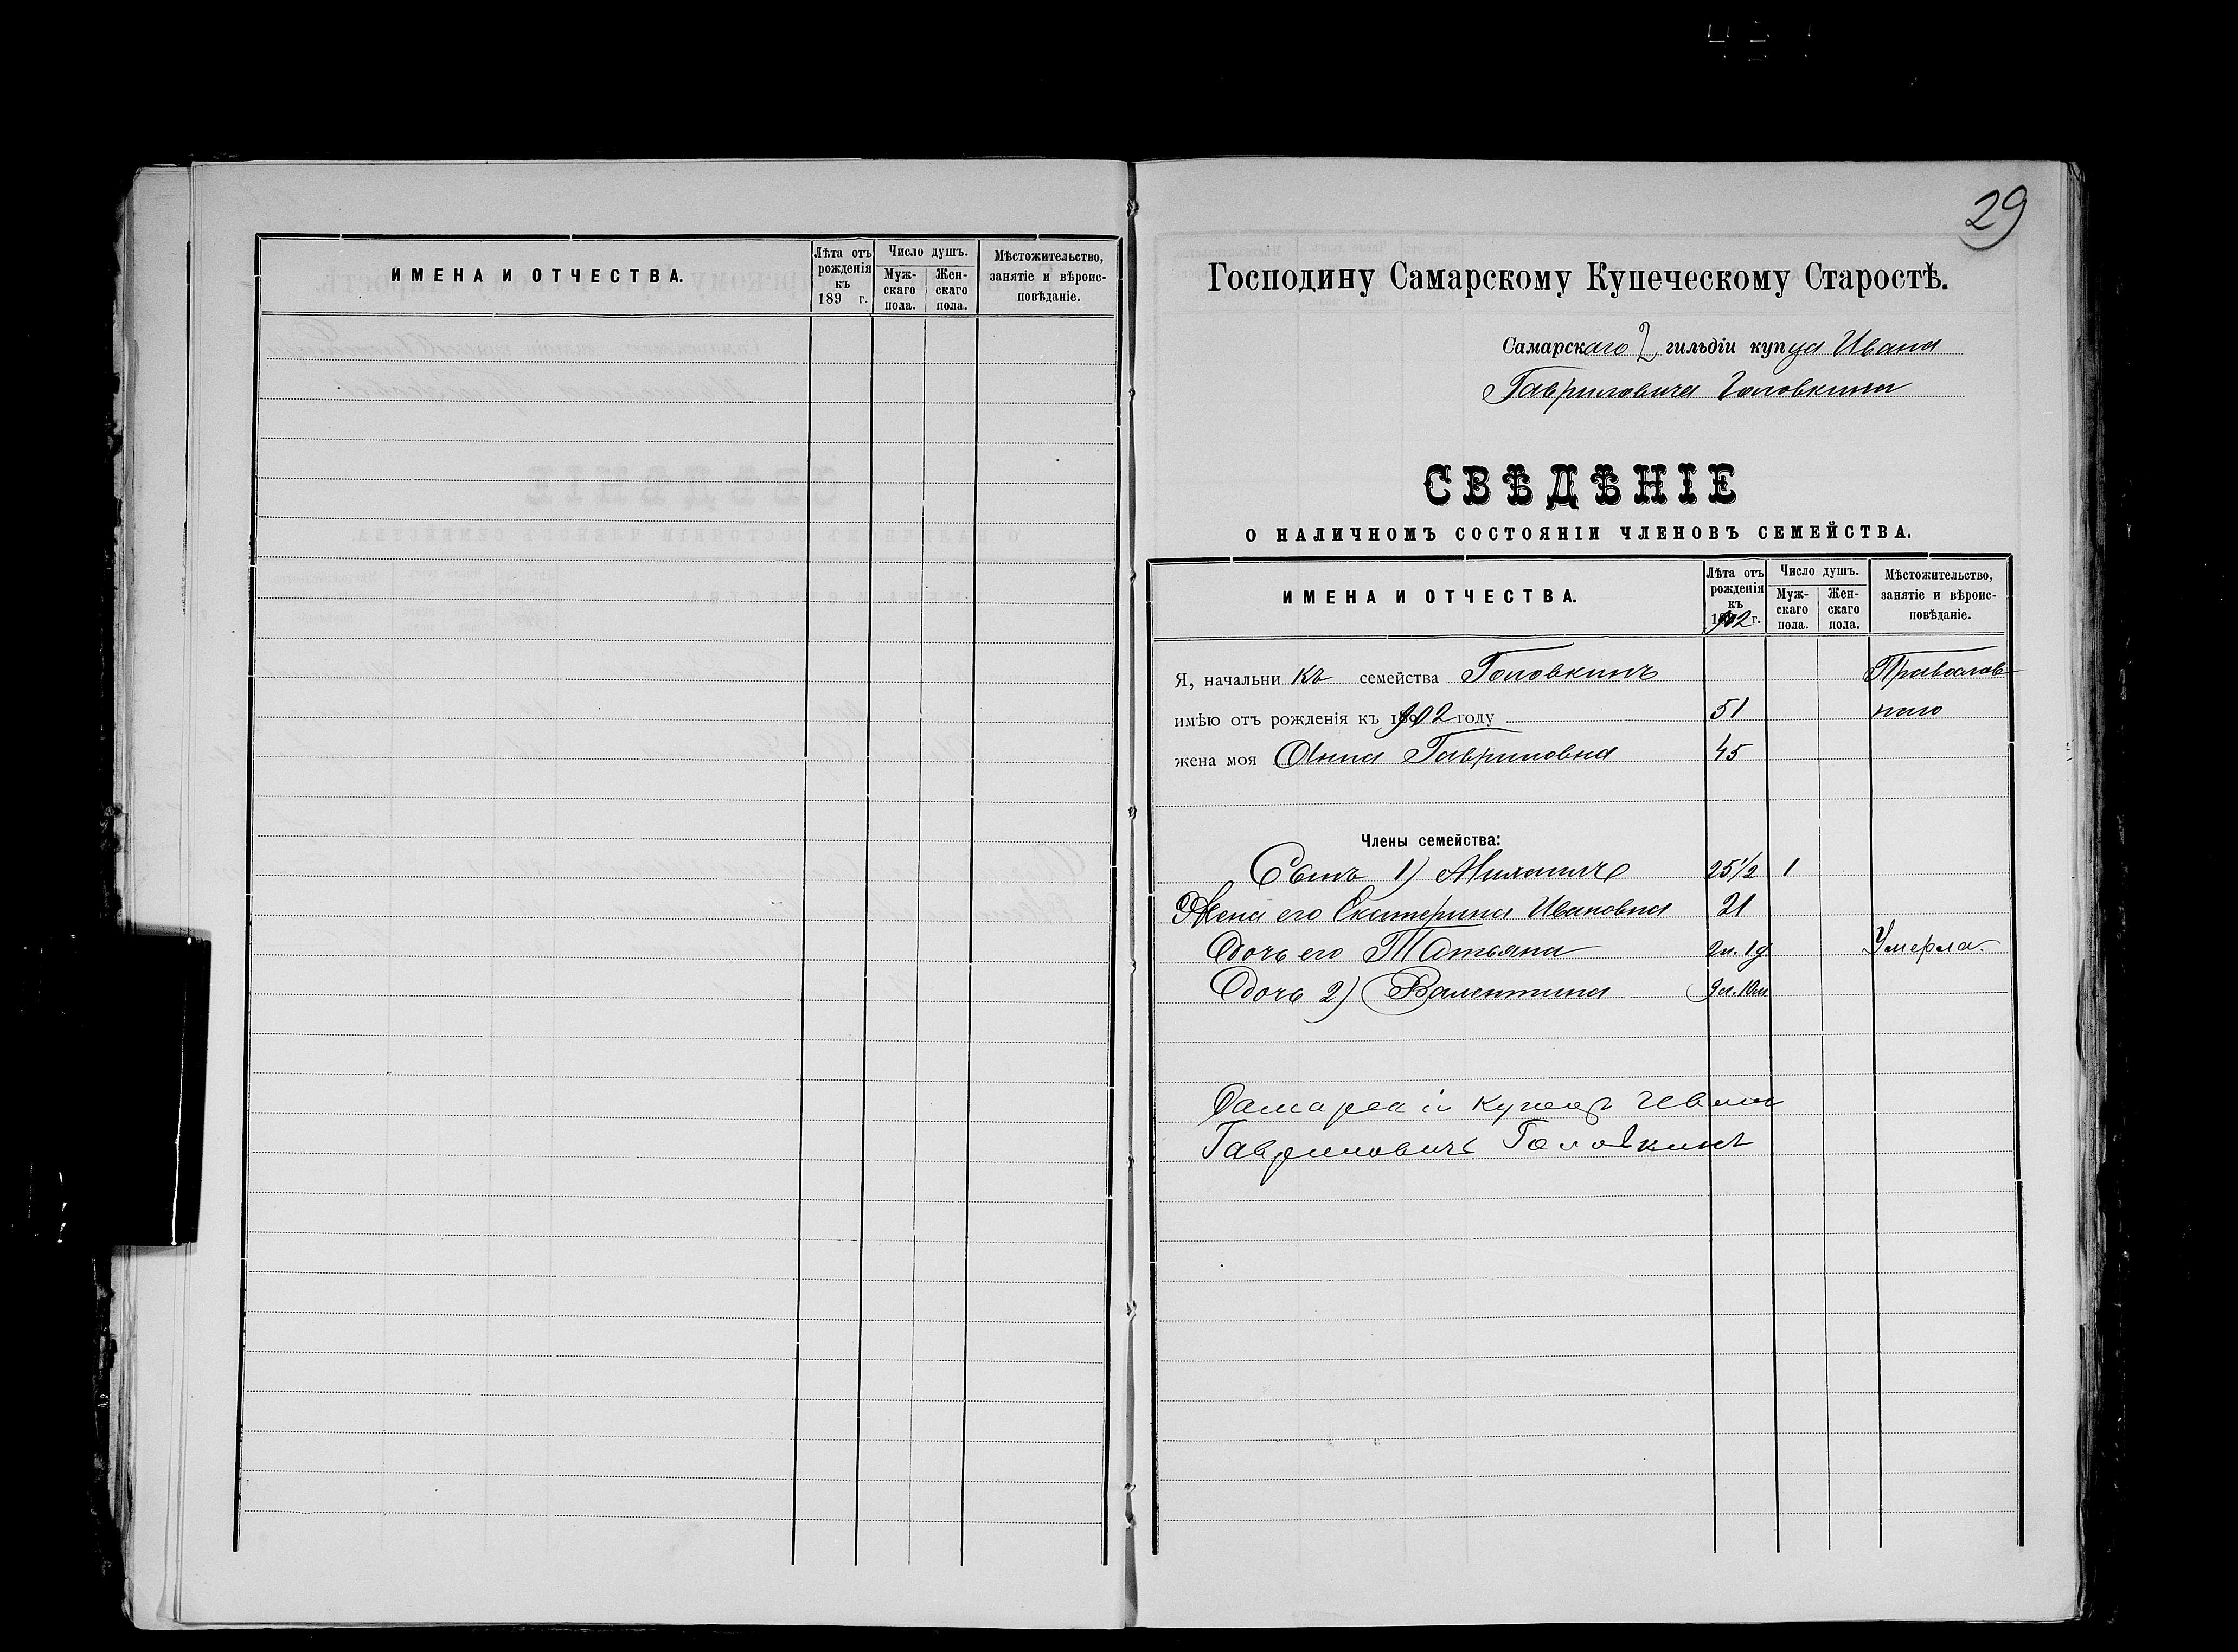 ИМЕНА И ОТЧЕСТВА.
Лѣта отъ рожденія къ 189 г.
Число душъ.
Мужскаго пола.
Женскаго пола.
Мѣстожительство, занятіе и вѣроисповѣданіе.
29
Господину Самарскому Купеческому Старостѣ.
Самарскаго 2 гильдіи купца Ивана
Гавриловича Головкина
СВѢДѢНІЕ
О НАЛИЧНОМЪ СОСТОЯНІИ ЧЛЕНОВЪ СЕМЕЙСТВА.
ИМЕНА И ОТЧЕСТВА.
Лѣта отъ рожденія къ 1902 г.
Число душъ.
Мужскаго пола.
Женскаго пола.
Мѣстожительство, занятіе и вѣроисповѣданіе.
Я, начальникъ семейства Головкинъ Православ
имѣю отъ рожденія къ 1902 году 51 наго
жена моя Анна Гавриловна 45
Члены семейства:
Сынъ 1) 25 1/2 1
Жена его Екатерина Ивановна 21
Дочь его Татьяна Умерла.
Дочь 2) Валентина
Самарскій купецъ Иванъ
Гавриловичъ Головкинъ